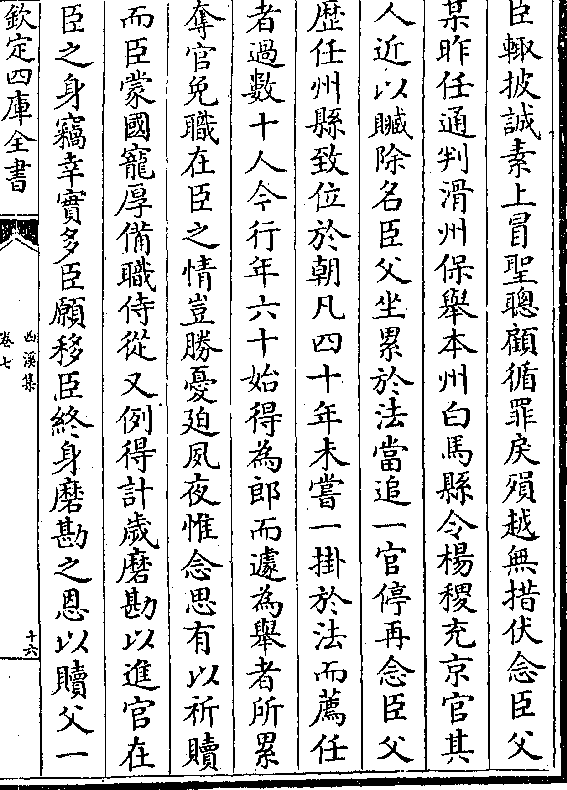 臣輙披誠素上冒聖聰顧循罪戾殞越無措伏念臣父
某昨任通判滑州保舉本州白馬縣令楊稷充京官其
人近以贓除名臣父坐累於法當追一官停再念臣父
歴任州縣致位於朝凡四十年未嘗一掛於法而薦任
者過數十人今行年六十始得為郎而遽為舉者所累
奪官免職在臣之情豈勝憂廹夙夜惟念思有以祈贖
而臣蒙國寵厚備職侍從又例得計歲磨勘以進官在
臣之身竊幸實多臣願移臣終身磨勘之恩以贖父一
欽定四庫全書
溪集
卷七
十六